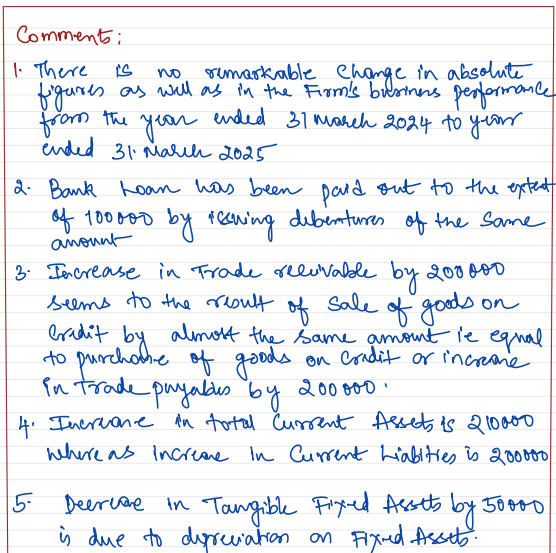 Comments:
1. There is no remarkable change in absolute
figures as well as in the Firm's business performance
from the year ended 31 march 2024 to year
ended 31. March 2025
2. Bank Loan has been paid out to the extent
of 100000 by issuing debentures of the same
amount
3. Increase in Trade receivable by 200000
seems to the result of Sale of goods on
Credit by almost the same amount ie equal
to purchase of goods on credit or increase
in trade payables by 200000.
4. Increase in total Current Assets is 210000
where as increase in Current Liabilities is 200000
5. Decrease in Tangible Fixed Assets by 50000
is due to depreciation on Fixed Assets.